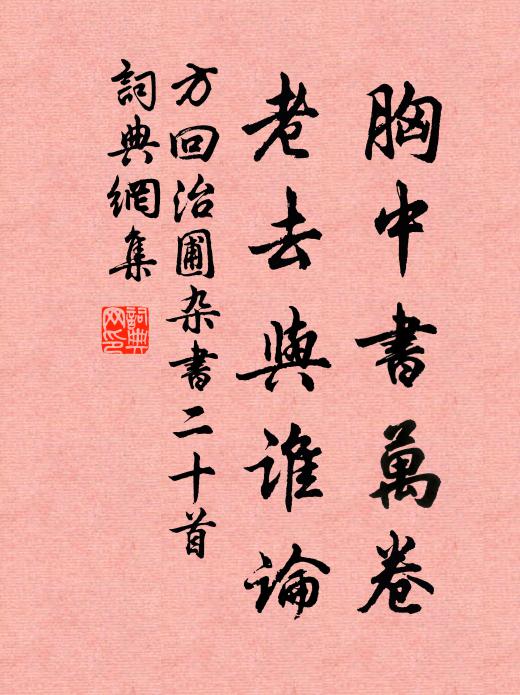 胸中書萬卷
老去與誰論
方回治圃杂書二十首
詞典網集
詞典網印